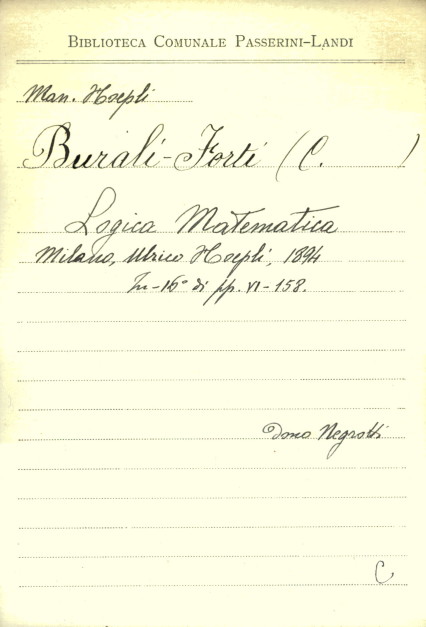 BIBLIOTECA COMUNALE PASSERINI-LANDI
Man. Hoepli
Burali-Forti (C. )
Logica Matematica
Milano, Ulrico Hoepli, 1894
In-16° di pp. VI-158.
Dono Negrotti
C